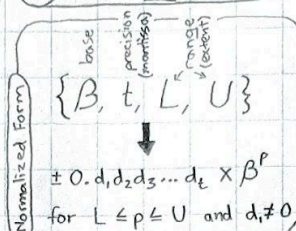 Normalized Form
base
precision
(mantissa)
range
(extent)
{β, t, L, U}
± 0.d₁d₂d₃... dₜ × βᵖ
for L ≤ p ≤ U and d₁≠0